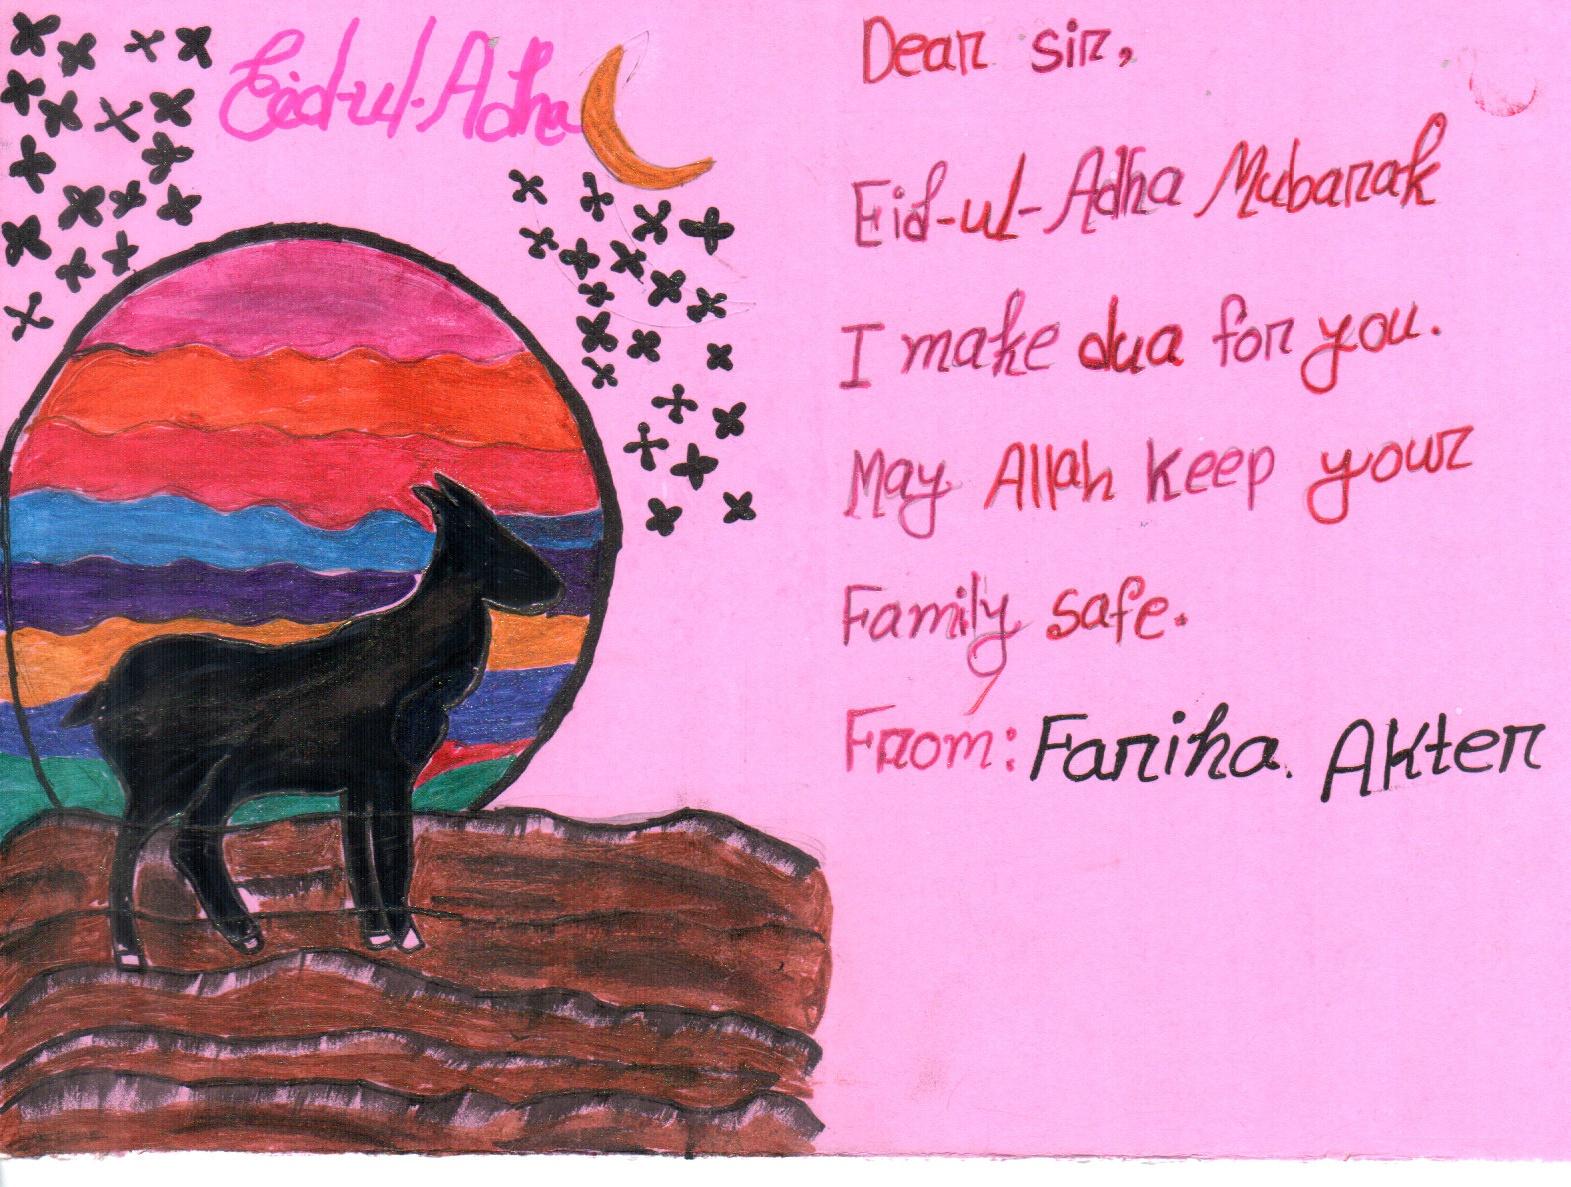 Eid-ul-Adha
Dear sir,
Eid-ul-Adha Mubarak
I make dua for you.
May Allah keep your
Family safe.
From: Fariha. Akter